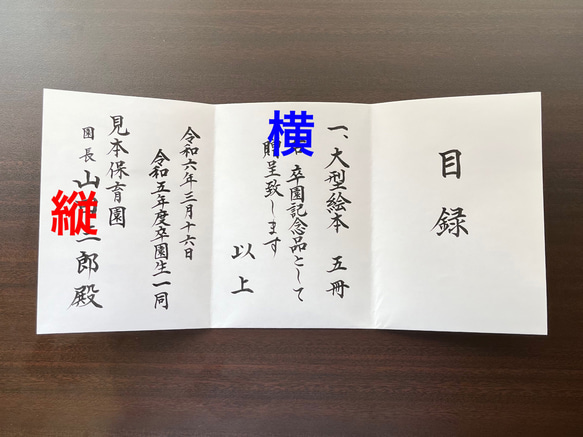 目録
一、大型絵本 五冊
卒園記念品として
贈呈致します
以上
横
令和六年三月十六日
令和五年度卒園生一同
見本保育園
園長 山 三郎殿
縦